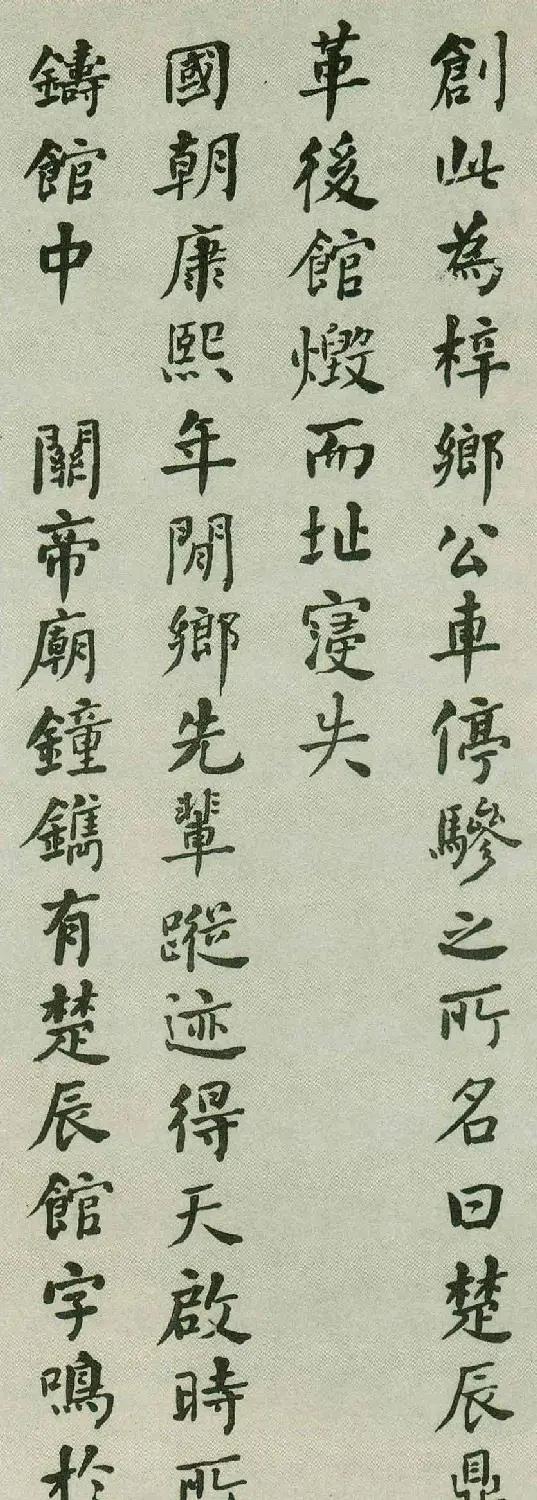 創此為梓鄉公車停驂之所名曰楚辰鼎
革後館燬而址寖失
國朝康熙年間鄉先輩蹤迹得天啟時所
鑄館中 關帝廟鐘鐫有楚辰館字鳴於